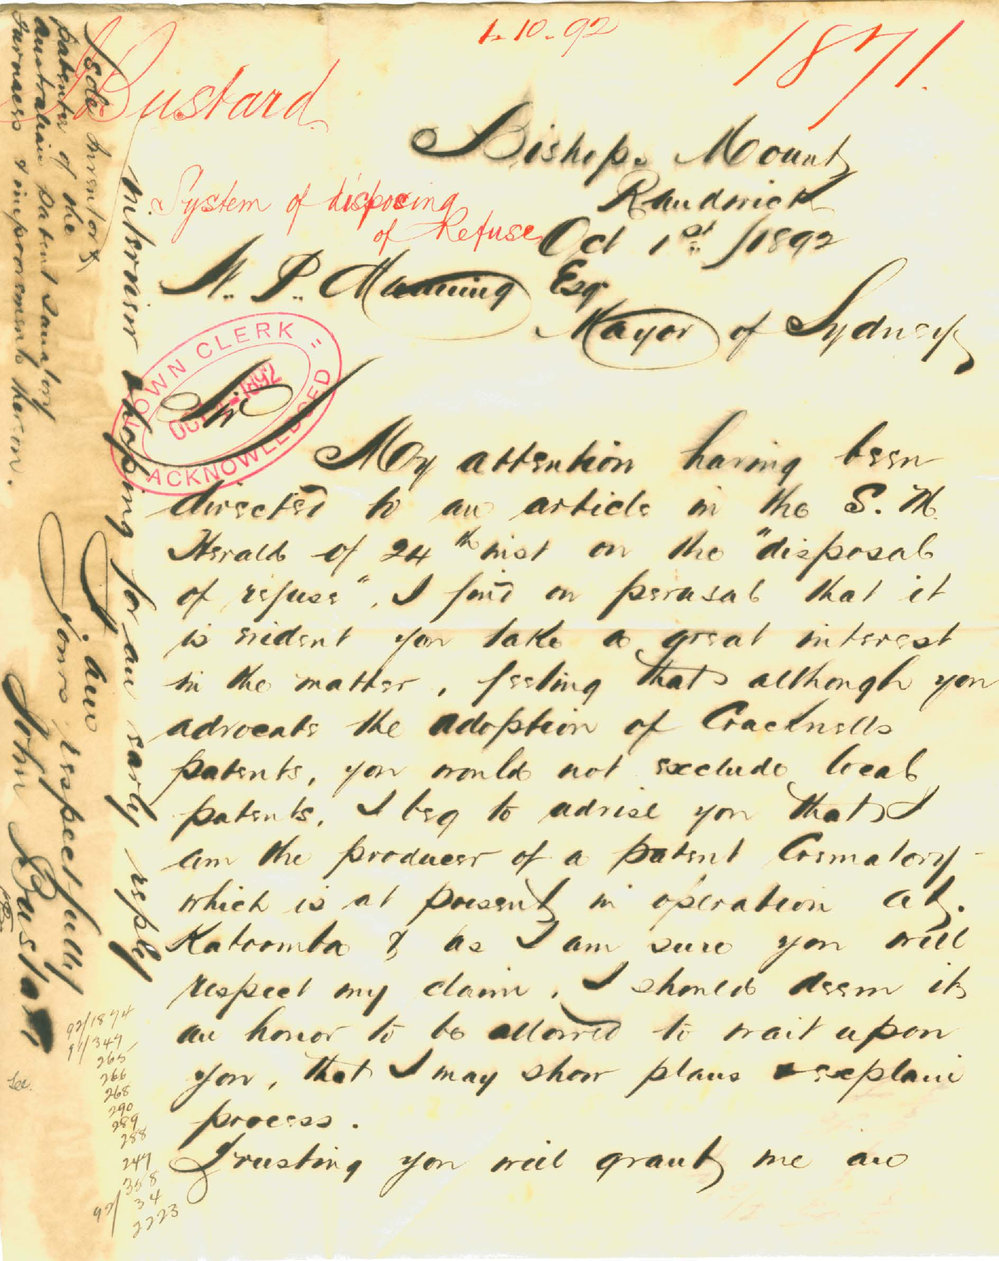 1.10.92
1871.
J Bustard
System of disposing
of Refuse
Bishops Mount
Randwick
Oct 1st /1892
W. P. Manning Esq
Mayor of Sydney
TOWN CLERK
OCT 1892
ACKNOWLEDGED
Sir
My attention having been
directed to an article in the S. M.
Herald of 24th inst on the "disposal
of refuse", I find on perusal that it
is evident you take a great interest
in the matter, feeling that although you
advocate the adoption of Cracknells
patents, you would not exclude local
patents, I beg to advise you that I
am the producer of a patent Crematory
which is at present in operation at
Katoomba & as I am sure you will
respect my claim, I should deem it
an honor to be allowed to wait upon
you, that I may show plans & explain
process.
Trusting you will grant me an
interview & hoping for an early reply
I am
yours respectfully
John Bustard
Sole Inventor &
Patentee of the
Australian Patent Sanatory
Furnaces & improvements thereon.
92/1894
91/347
265
266
268
290
289
288
247
358
92/ 34
2223